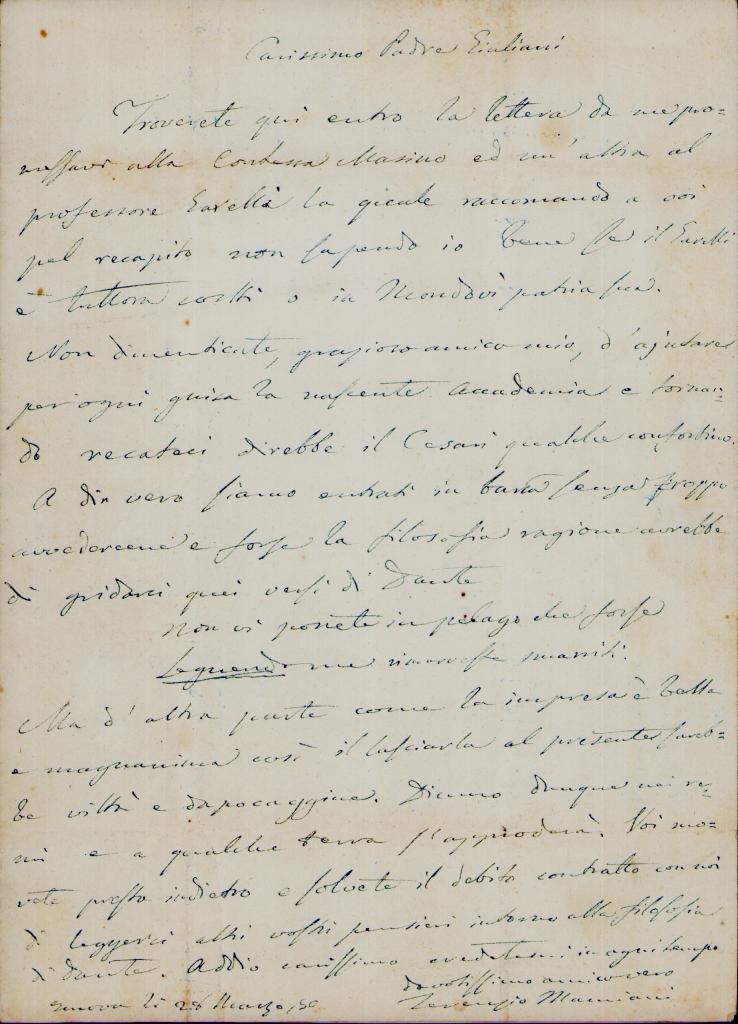 Carissimo Padre Giuliani
Troverete qui entro la lettera da me pro=
messavi alla Contessa Masino ed un'altra al
professore Garelli la quale raccomando a voi
pel recapito non sapendo io bene se il Garelli
è tuttora costì o in Mondovì patria sua.
Non dimenticate, grazioso amico mio, d'ajutare
per ogni guisa la nascente Accademia e tornan=
do recateci direbbe il Cesari qualche confortino.
A dir vero siamo entrati in barca senza troppo
avvedercene e forse la filosofia ragione avrebbe
di gridarci quei versi di Dante
Non vi ponete in pelago che forse
Seguendo me rimarreste smarriti.
Ma d'altra parte come la impresa è bella
e magnanima così il lasciarla al presente sareb=
be viltà e dapocaggine. Diamo dunque nei re=
mi e a qualche terra s'approderà. Voi
presto indietro e solvete il debito contratto con noi
di leggerci altri vostri pensieri intorno alla filosofia
di Dante. Addio carissimo credetemi in ogni tempo
devotissimo amico vero
Genova li 28 Marzo, 50 Terenzio Mamiani